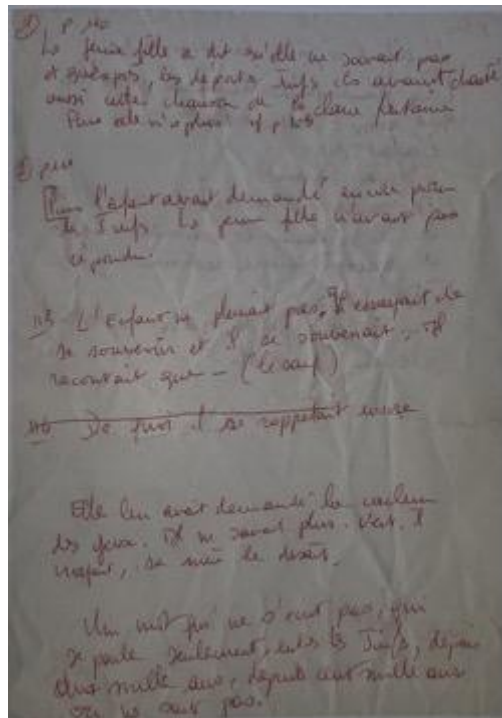 p 110
La jeune fille a dit qu'elle ne savait pas
et quelquefois, les déportés Juifs ils avaient chanté
aussi cette chanson de la claire fontaine
Puis elle
② p 110
Puis l'enfant avait demandé encore pour
les Juifs. La jeune fille n'avait pas
répondu.
L'Enfant ne pleurait pas. Il essayait de
se souvenir et il se souvenait. Il
racontait que –
De quoi il se rappelait encore
Elle lui avait demandé la couleur
des yeux. Il ne savait plus. Vert, il
croyait, sa mère le disait.
Un mot qui ne s'écrit pas, qui
se parle seulement, entre les Juifs, depuis
deux mille ans, depuis cent mille ans
on ne sait pas.